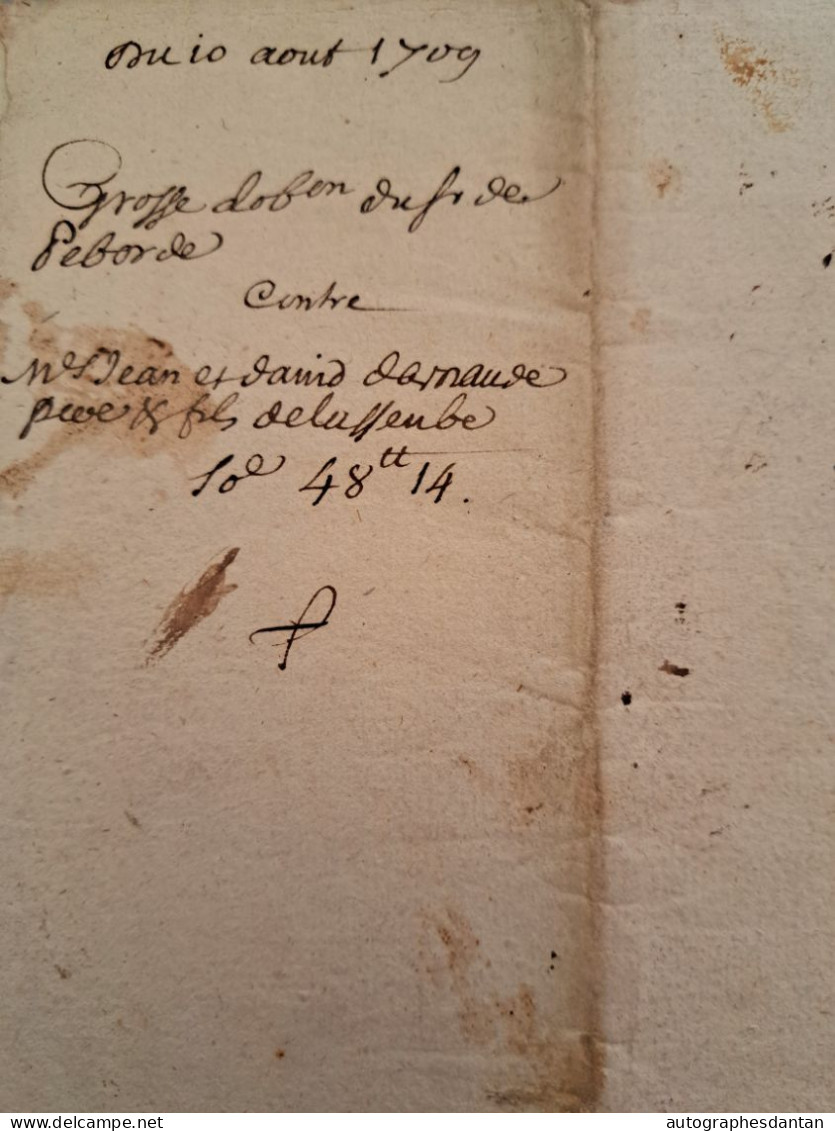 Du 10 aout 1709
Grosse dobon du sr de
Peborde
Contre
Mes Jean et david darnaude
pere & fils delasseube
48tt 14.
delcampe.net
autographesdantan